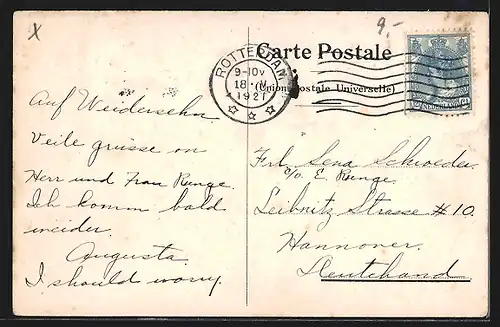 X
9,-
Carte Postale
(Union Postale Universelle)
ROTTERDAM
9-10V
18
1921
NEDERLAND
Auf Weidersehn
Veile grüsse on
Herr und Frau Runge.
Ich komm bald
weider.
Augusta
I should worry.
Frl Lena Schroeder
c/o E. Runge.
Leibnitz Strasse # 10.
Hannover.
Deutchand